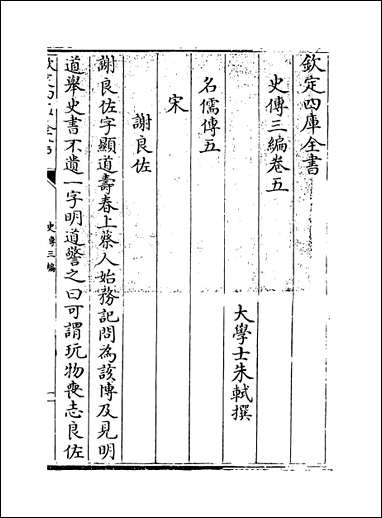 欽定四庫全書
史傳三編卷五
大學士朱軾撰
名儒傳五
宋
謝良佐
謝良佐字顯道壽春上蔡人始務記問為該博及見明
道舉史書不遺一字明道警之曰可謂玩物喪志良佐
史傳三編